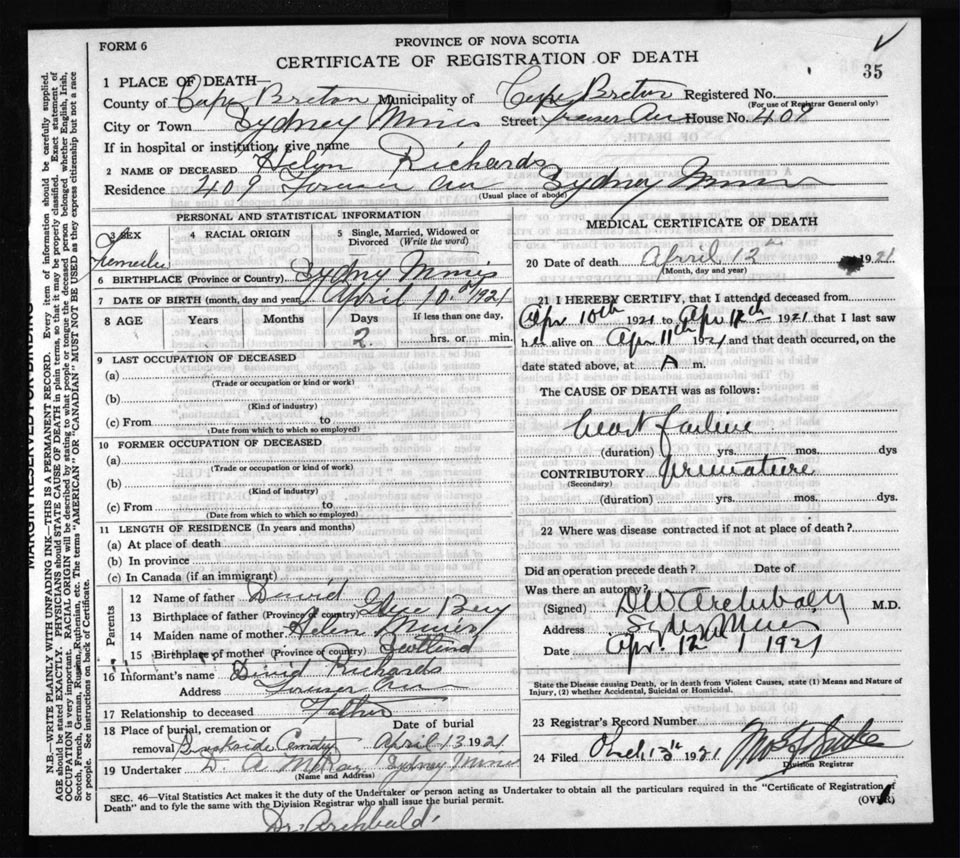 FORM 6
PROVINCE OF NOVA SCOTIA
CERTIFICATE OF REGISTRATION OF DEATH
35
1 PLACE OF DEATH—
County of Cape Breton Municipality of Cape Breton Registered No.
(For use of Registrar General only)
City or Town Sydney Mines Street Fraser Ave House No. 409
If in hospital or institution, give name
2 NAME OF DECEASED Helen Richards
Residence 409 Ave Sydney Mines
(Usual place of abode)
PERSONAL AND STATISTICAL INFORMATION
3 SEX
Female
4 RACIAL ORIGIN
5 Single, Married, Widowed or Divorced (Write the word)
6 BIRTHPLACE (Province or Country) Sydney Mines
7 DATE OF BIRTH (month, day and year) April 10th 1921
8 AGE Years Months Days If less than one day,
2 hrs. or min.
9 LAST OCCUPATION OF DECEASED
(a)
(Trade or occupation or kind of work)
(b)
(Kind of industry)
(c) From to
(Date from which to which so employed)
10 FORMER OCCUPATION OF DECEASED
(a)
(Trade or occupation or kind of work)
(b)
(Kind of industry)
(c) From to
(Date from which to which so employed)
11 LENGTH OF RESIDENCE (In years and months)
(a) At place of death
(b) In province
(c) In Canada (if an immigrant)
Parents
12 Name of father David
13 Birthplace of father (Province or country) Glace Bay
14 Maiden name of mother Helen
15 Birthplace of mother (Province or country) Scotland
16 Informant's name David Richards
Address Ave
17 Relationship to deceased Father
18 Place of burial, cremation or Date of burial
removal Brookside Cemetery April 13 1921
19 Undertaker D. A. McKay Sydney Mines
(Name and Address)
MEDICAL CERTIFICATE OF DEATH
20 Date of death April 12th 1921
(Month, day and year)
21 I HEREBY CERTIFY, that I attended deceased from
Apr 10th 1921 to Apr 12th 1921 that I last saw
her alive on Apr 11th 1921 and that death occurred, on the
date stated above, at A m.
The CAUSE OF DEATH was as follows:
heart failure
(duration) yrs. mos. dys
CONTRIBUTORY premature
(Secondary)
(duration) yrs. mos. dys.
22 Where was disease contracted if not at place of death?
Did an operation precede death? Date of
Was there an autopsy?
(Signed) D W Archibald M.D.
Address Sydney Mines
Date Apr. 12 1921
State the Disease causing Death, or in death from Violent Causes, state (1) Means and Nature of
Injury, (2) whether Accidental, Suicidal or Homicidal.
23 Registrar's Record Number
24 Filed 13th 1921
Division Registrar
SEC. 46—Vital Statistics Act makes it the duty of the Undertaker or person acting as Undertaker to obtain all the particulars required in the "Certificate of Registration of
Death" and to fyle the same with the Division Registrar who shall issue the burial permit.
(OVER)
Dr. Archibald
MARGIN RESERVED FOR BINDING
N.B.—WRITE PLAINLY WITH UNFADING INK—THIS IS A PERMANENT RECORD. Every item of information should be carefully supplied.
AGE should be stated EXACTLY. PHYSICIANS should STATE CAUSE OF DEATH in plain terms, so that it may be properly classified. Exact statement of
OCCUPATION is very important. RACIAL ORIGIN will be described by stating to what people or tongue the deceased person belonged whether English, Irish,
Scotch, French, German, Russian, Ruthenian, etc. The terms "AMERICAN" OR "CANADIAN" MUST NOT BE USED as they express citizenship but not a race
or people. See instructions on back of Certificate.